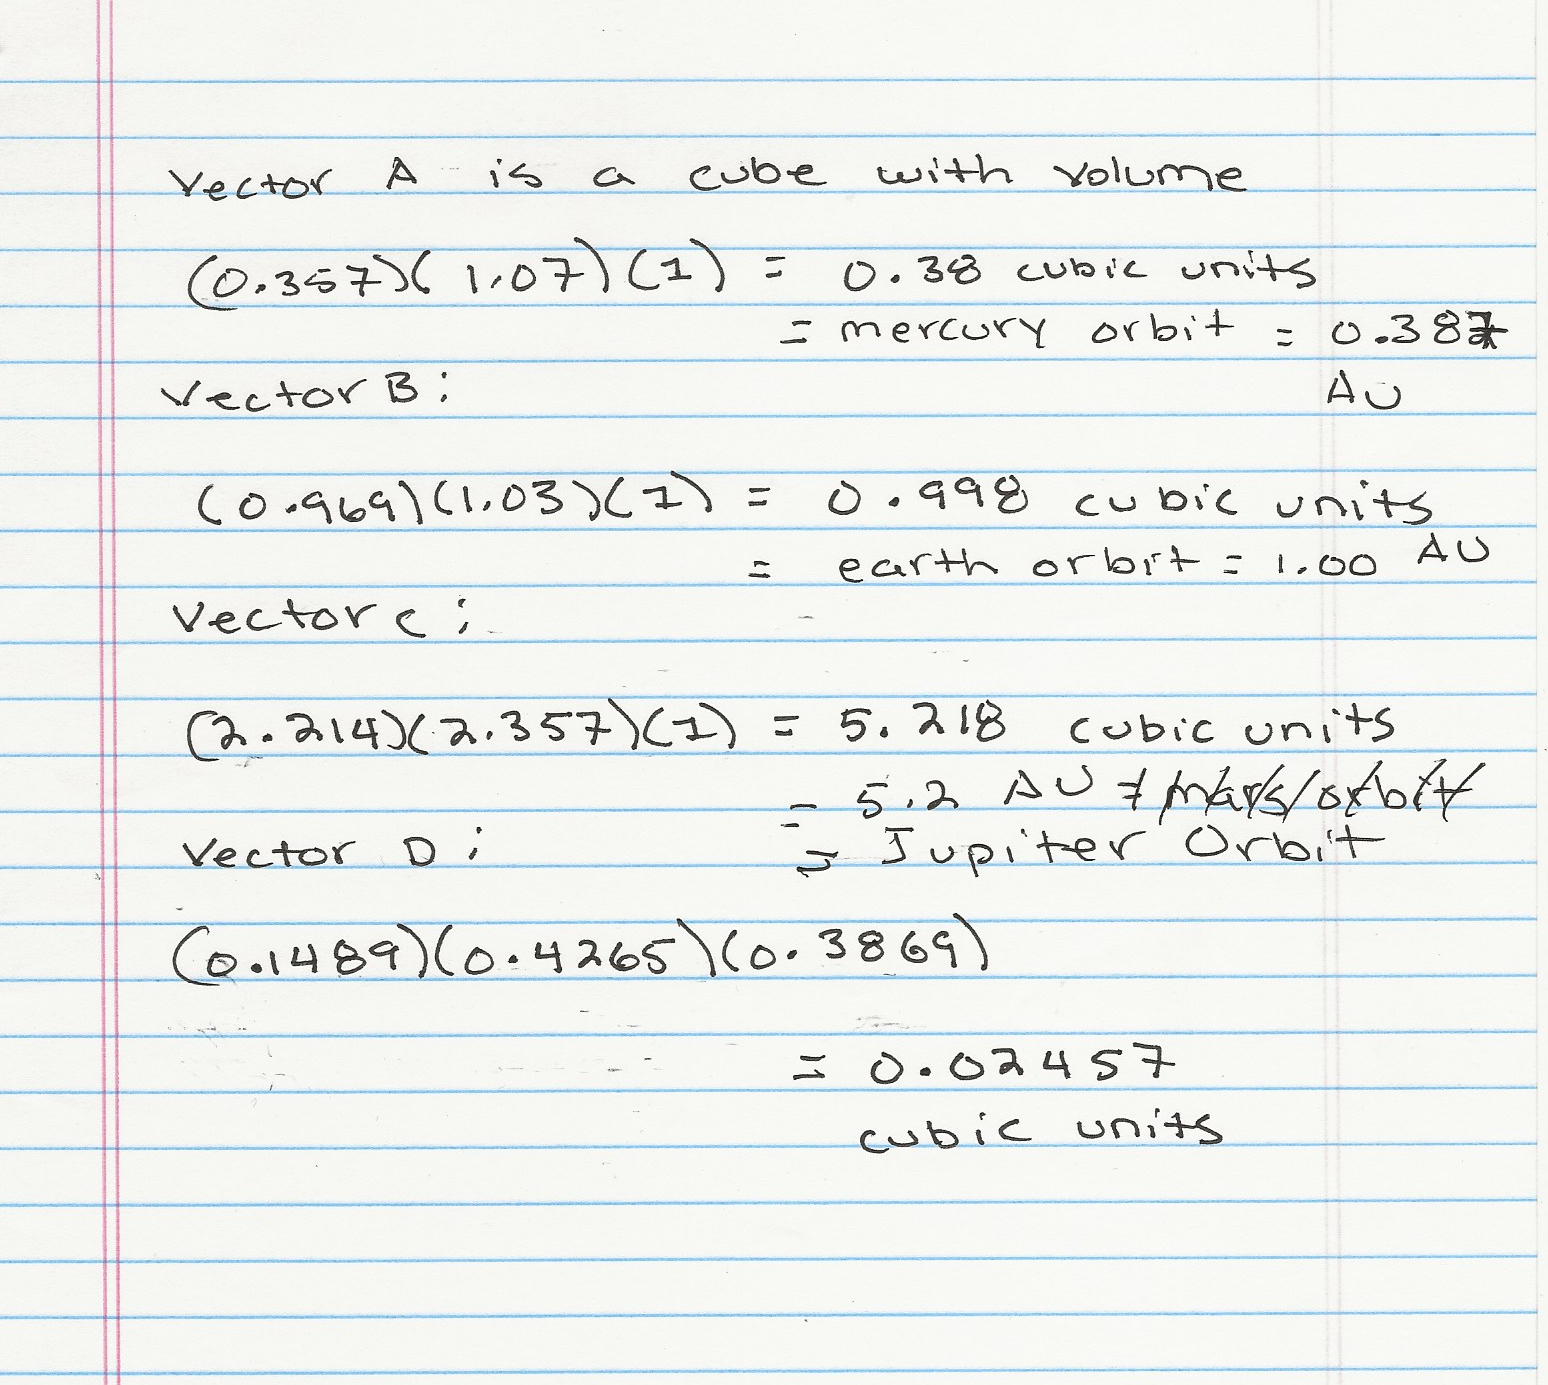 Vector A is a cube with volume
(0.357)(1.07)(1) = 0.38 cubic units
= mercury orbit = 0.387
Vector B: AU
(0.969)(1.03)(1) = 0.998 cubic units
= earth orbit = 1.00 AU
Vector C:
(2.214)(2.357)(1) = 5.218 cubic units
= 5.2 AU ≠ mars orbit
Vector D: = Jupiter Orbit
(0.1489)(0.4265)(0.3869)
= 0.02457
cubic units